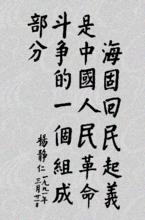 海固回民起義
是中國人民革命
斗争的一個組成
部分
楊静仁
一九九一年
三月廿一日